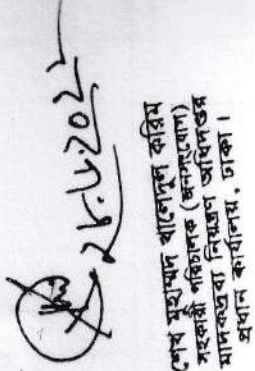 ২৮.৭.২০২২
শেখ মুহাম্মদ খালেদুল করিম
সহকারী পরিচালক (জনসংযোগ)
মাদকদ্রব্য নিয়ন্ত্রণ অধিদপ্তর
প্রধান কার্যালয়, ঢাকা।